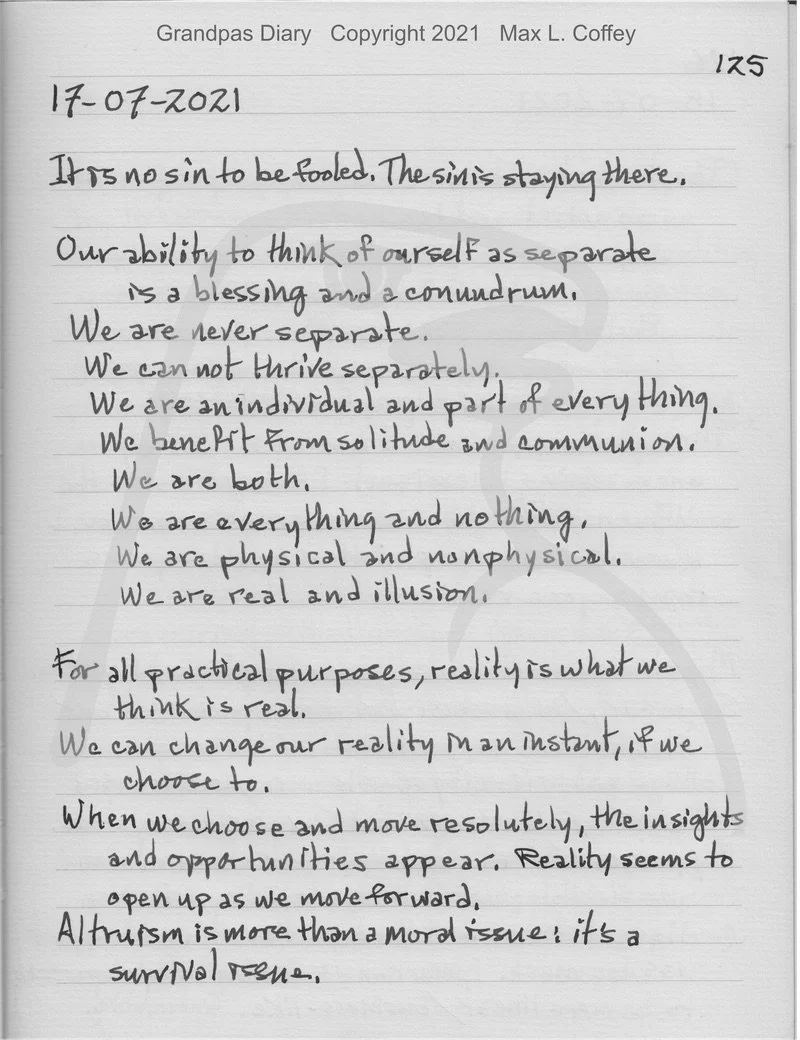 Grandpas Diary Copyright 2021 Max L. Coffey
125
17-07-2021
It is no sin to be fooled. The sin is staying there.
Our ability to think of ourself as separate
is a blessing and a conundrum.
We are never separate.
We can not thrive separately.
We are an individual and part of everything.
We benefit from solitude and communion.
We are both.
We are everything and nothing.
We are physical and nonphysical.
We are real and illusion.
For all practical purposes, reality is what we
think is real.
We can change our reality in an instant, if we
choose to.
When we choose and move resolutely, the insights
and opportunities appear. Reality seems to
open up as we move forward.
Altruism is more than a moral issue: it's a
survival issue.